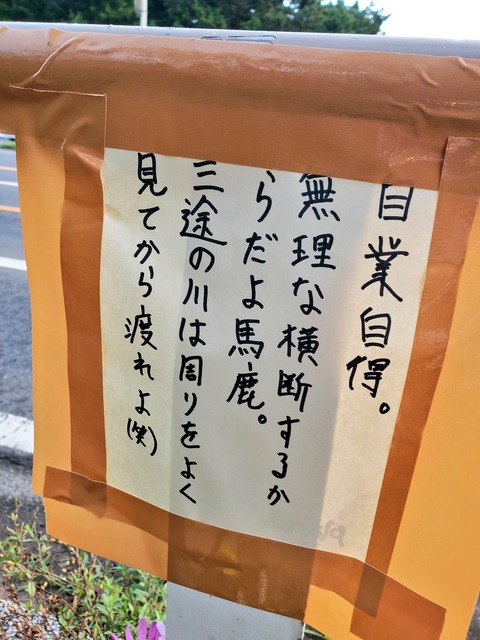 自業自得。
無理な横断するか
らだよ馬鹿。
三途の川は周りをよく
見てから渡れよ(笑)